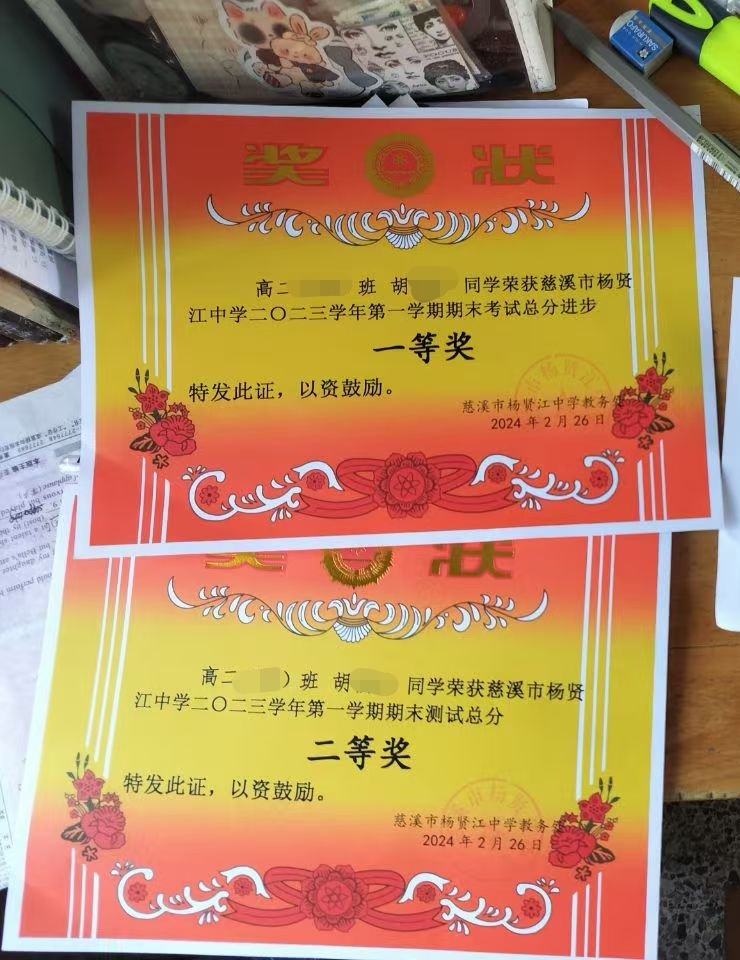 SAKURAFO
奖 状
高二 班 胡 同学荣获慈溪市杨贤
江中学二〇二三学年第一学期期末考试总分进步
一等奖
特发此证，以资鼓励。
慈溪市杨贤江中学教务处
2024年2月26日
奖 状
高二 ）班 胡 同学荣获慈溪市杨贤
江中学二〇二三学年第一学期期末测试总分
二等奖
特发此证，以资鼓励。
慈溪市杨贤江中学教务处
2024年2月26日